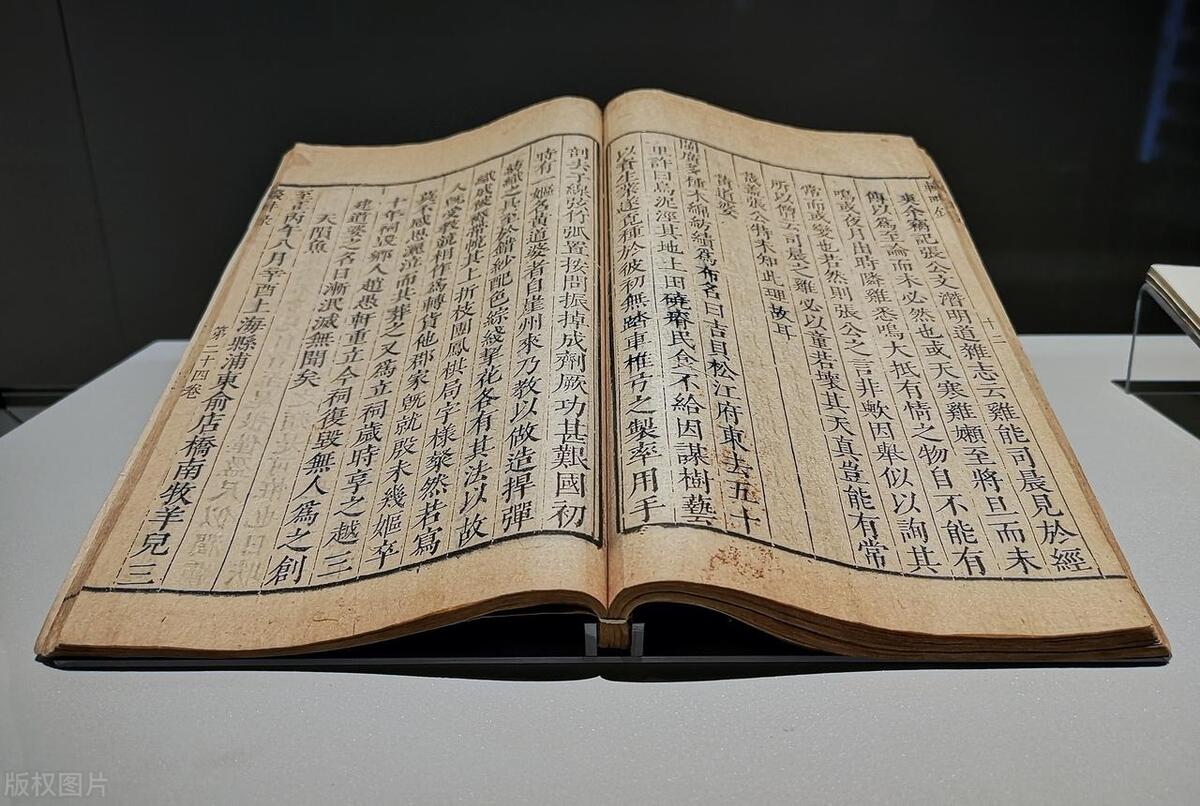 十二
余藉記張公文潛明道雜志云雞能司晨見於經
傳以為至論而未必然也或天寒雞嬾至將旦而未
鳴或夜月出時隣雞悉鳴大抵有情之物自不能有
常而或變也若然則張公之言非歟因舉似以詢其
所以僧云司晨之雞必以童若壞其天真豈能有常
蓋張公特未知此理故耳
黃道婆
閩廣多種木綿紡績爲布名曰吉貝松江府東去五十
里許曰烏泥涇其地土田磽瘠民食不給因謀樹藝
以資生業遂覓種於彼初無踏車椎弓之製率用手
剖去子線弦竹弧置按間振掉成劑厥功甚艱國初
時有一嫗名黃道婆者自崖州來乃教以做造捍彈
紡織之具至於錯紗配色綜綫挈花各有其法以故
織成被褥帶帨其上折枝團鳳棋局字樣粲然若寫
人既受教競相作爲轉貨他郡家既就殷未幾嫗卒
莫不感恩灑泣而共葬之又爲立祠歲時享之越三
十年祠毀鄉人趙愚軒重立今祠復毀無人爲之創
建道婆之名日漸泯滅無聞矣
天隕魚
至正丙午八月辛酉上海縣浦東俞店橋南牧羊兒三
第二十四卷
版权图片